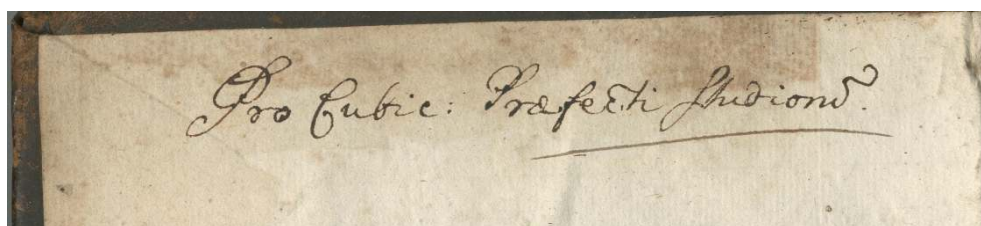 Pro Cubic: Præfecti Studiorũ.